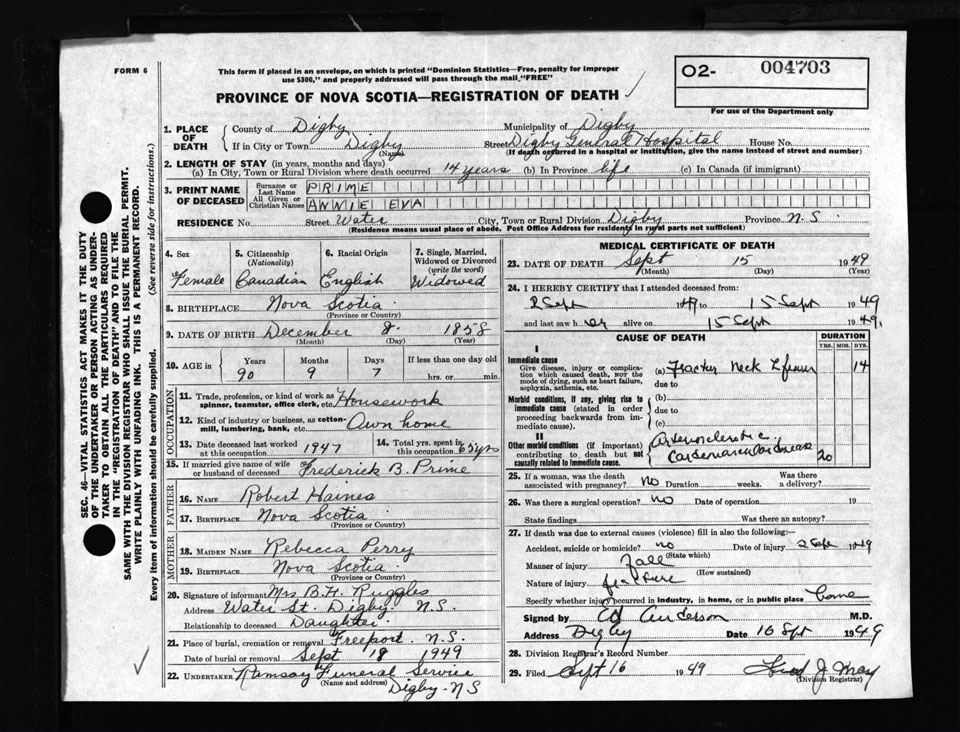 FORM 6
This form if placed in an envelope, on which is printed "Dominion Statistics—Free, penalty for improper
use $300," and properly addressed will pass through the mail "FREE"
PROVINCE OF NOVA SCOTIA—REGISTRATION OF DEATH
O2- 004703
For use of the Department only
SEC. 46—VITAL STATISTICS ACT MAKES IT THE DUTY
OF THE UNDERTAKER OR PERSON ACTING AS UNDER-
TAKER TO OBTAIN ALL THE PARTICULARS REQUIRED
IN THE "REGISTRATION OF DEATH" AND TO FILE THE
SAME WITH THE DIVISION REGISTRAR WHO SHALL ISSUE THE BURIAL PERMIT.
WRITE PLAINLY WITH UNFADING INK. THIS IS A PERMANENT RECORD.
Every item of information should be carefully supplied. (See reverse side for instructions.)
1. PLACE OF DEATH County of Digby Municipality of Digby
If in City or Town Digby (Name) Street Digby General Hospital House No.
(If death occurred in a hospital or institution, give the name instead of street and number)
2. LENGTH OF STAY (in years, months and days)
(a) In City, Town or Rural Division where death occurred 14 years (b) In Province life (c) In Canada (if immigrant)
3. PRINT NAME OF DECEASED Surname or Last Name PRIME
All Given or Christian Names ANNIE EVA
RESIDENCE No. Street Water City, Town or Rural Division Digby Province N.S.
(Residence means usual place of abode. Post Office Address for residents in rural parts not sufficient)
4. Sex 5. Citizenship (Nationality) 6. Racial Origin 7. Single, Married, Widowed or Divorced (write the word)
Female Canadian English Widowed
8. BIRTHPLACE Nova Scotia
(Province or Country)
9. DATE OF BIRTH December 8. 1858
(Month) (Day) (Year)
10. AGE in Years Months Days If less than one day old
90 9 7 hrs. or min.
OCCUPATION
11. Trade, profession, or kind of work as spinner, teamster, office clerk, etc. Housework
12. Kind of industry or business, as cotton-mill, lumbering, bank, etc. Own home
13. Date deceased last worked at this occupation 1947 14. Total yrs. spent in this occupation 65 yrs
15. If married give name of wife or husband of deceased Frederick B. Prime
FATHER
16. NAME Robert Haines
17. BIRTHPLACE Nova Scotia
(Province or Country)
MOTHER
18. MAIDEN NAME Rebecca Perry
19. BIRTHPLACE Nova Scotia
(Province or Country)
20. Signature of informant Mrs B.H. Ruggles
Address Water St. Digby. N.S.
Relationship to deceased Daughter.
21. Place of burial, cremation or removal Freeport. N.S.
Date of burial or removal Sept 18 1949
22. UNDERTAKER Ramsay Funeral Service
(Name and address) Digby-NS
MEDICAL CERTIFICATE OF DEATH
23. DATE OF DEATH Sept 15 1949
(Month) (Day) (Year)
24. I HEREBY CERTIFY that I attended deceased from:
2 Sept 1949 to 15 Sept 1949
and last saw her alive on 15 Sept 1949.
CAUSE OF DEATH DURATION
YRS. MOS. DYS.
I
Immediate cause
Give disease, injury or complica-
tion which caused death, NOT the
mode of dying, such as heart failure,
asphyxia, asthenia, etc.
(a) Fracture Neck L femur 14
due to
Morbid conditions, if any, giving rise to
immediate cause (stated in order
proceeding backwards from im-
mediate cause).
(b)
due to
(c)
II
Other morbid conditions (if important)
contributing to death but not
causally related to immediate cause.
Arteriosclerotic
Cardiovascular disease 20
25. If a woman, was the death associated with pregnancy? No Duration weeks. Was there a delivery?
26. Was there a surgical operation? no Date of operation 19
State findings Was there an autopsy?
27. If death was due to external causes (violence) fill in also the following:—
Accident, suicide or homicide? no Date of injury 2 Sept 1949
(State which)
Manner of injury fall
(How sustained)
Nature of injury fracture
Specify whether injury occurred in industry, in home, or in public place home
Signed by Anderson M.D.
Address Digby Date 16 Sept 1949
28. Division Registrar's Record Number
29. Filed Sept 16 1949 Fred J. May
(Division Registrar)